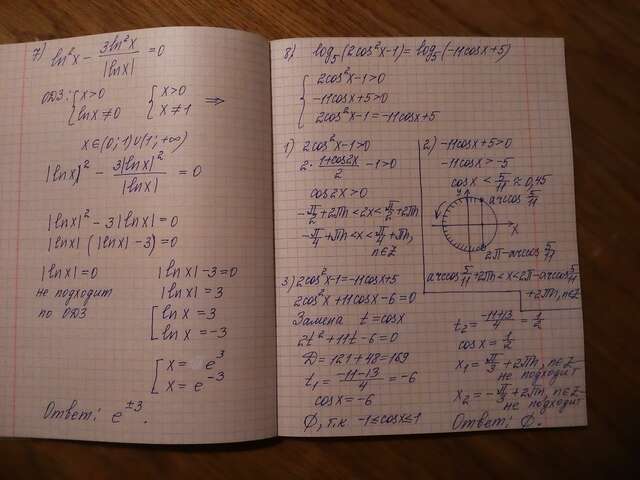 7) ln²x - 3ln²x/|lnx| = 0
ОДЗ: { x>0 { x>0 ⇒
lnx≠0 x≠1
x∈(0;1)∪(1;+∞)
|lnx|² - 3|lnx|²/|lnx| = 0
|lnx|² - 3|lnx| = 0
|lnx| (|lnx| - 3) = 0
|lnx| = 0 |lnx| - 3 = 0
не подходит |lnx| = 3
по ОДЗ [ lnx = 3
lnx = -3
[ x = e³
x = e⁻³
Ответ: e^±3.
8) log₅(2cos²x-1) = log₅(-11cosx+5)
{ 2cos²x-1>0
-11cosx+5>0
2cos²x-1 = -11cosx+5
1) 2cos²x-1>0
2·(1+cos2x)/2 - 1>0
cos2x>0
-π/2+2πn<2x<π/2+2πn
-π/4+πn<x<π/4+πn,
n∈Z
2) -11cosx+5>0
-11cosx>-5
cosx < 5/11 ≈ 0,45
y arccos 5/11
x
2π-arccos 5/11
arccos 5/11+2πn<x<2π-arccos 5/11
+2πn, n∈Z
3) 2cos²x-1=-11cosx+5
2cos²x+11cosx-6=0
Замена t=cosx
2t²+11t-6=0
D=121+48=169
t₁ = (-11-13)/4 = -6
cosx=-6
∅, т.к -1≤cosx≤1
t₂ = (-11+13)/4 = 1/2
cosx = 1/2
x₁ = π/3+2πn, n∈Z
не подходит
x₂ = -π/3+2πn, n∈Z
не подходит
Ответ: ∅.